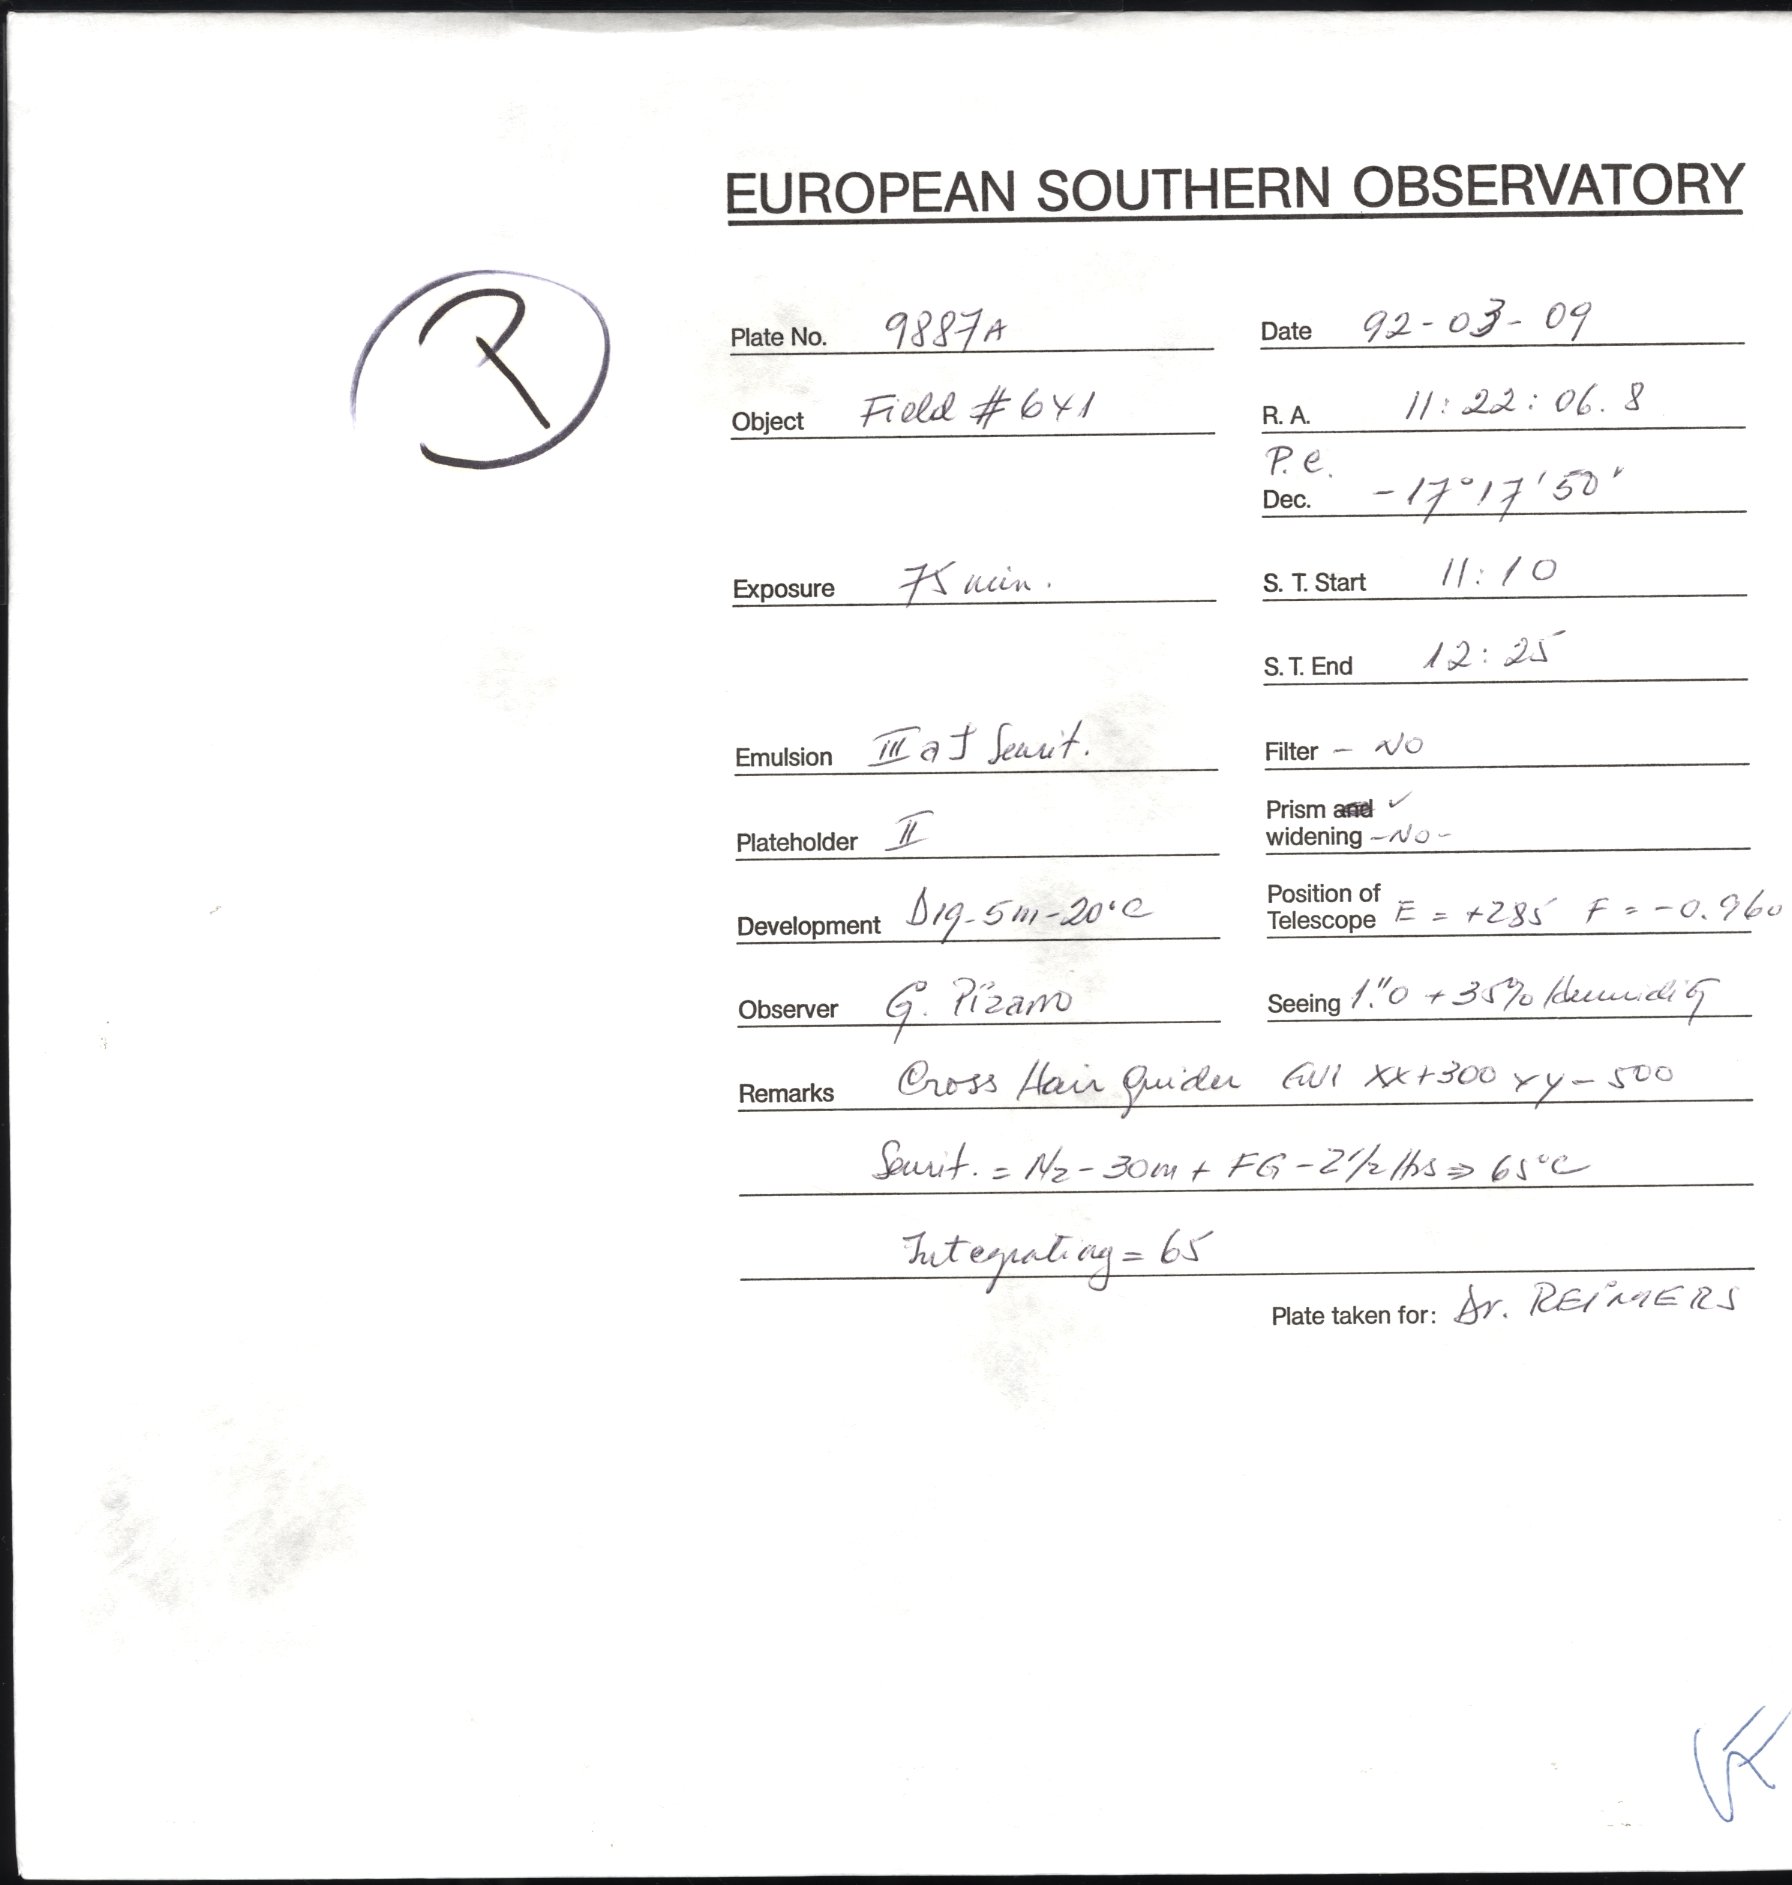 EUROPEAN SOUTHERN OBSERVATORY
R
Plate No. 9887A
Date 92-03-09
Object Field #641
R. A. 11:22:06.8
P.e.
Dec. -17°17'50"
Exposure 75 min.
S. T. Start 11:10
S. T. End 12:25
Emulsion III a J Sensit.
Filter - NO
Plateholder II
Prism and ✓
widening -NO-
Development D19-5m-20°C
Position of
Telescope E = +285 F = -0.960
Observer G. Pizarro
Seeing 1."0 + 35% Humidity
Remarks Cross Hair guider GUI XX+300 YY-500
Sensit. = N2-30m + FG-2½ Hs ⇒ 65°C
Integrating = 65
Plate taken for: Dr. REIMERS